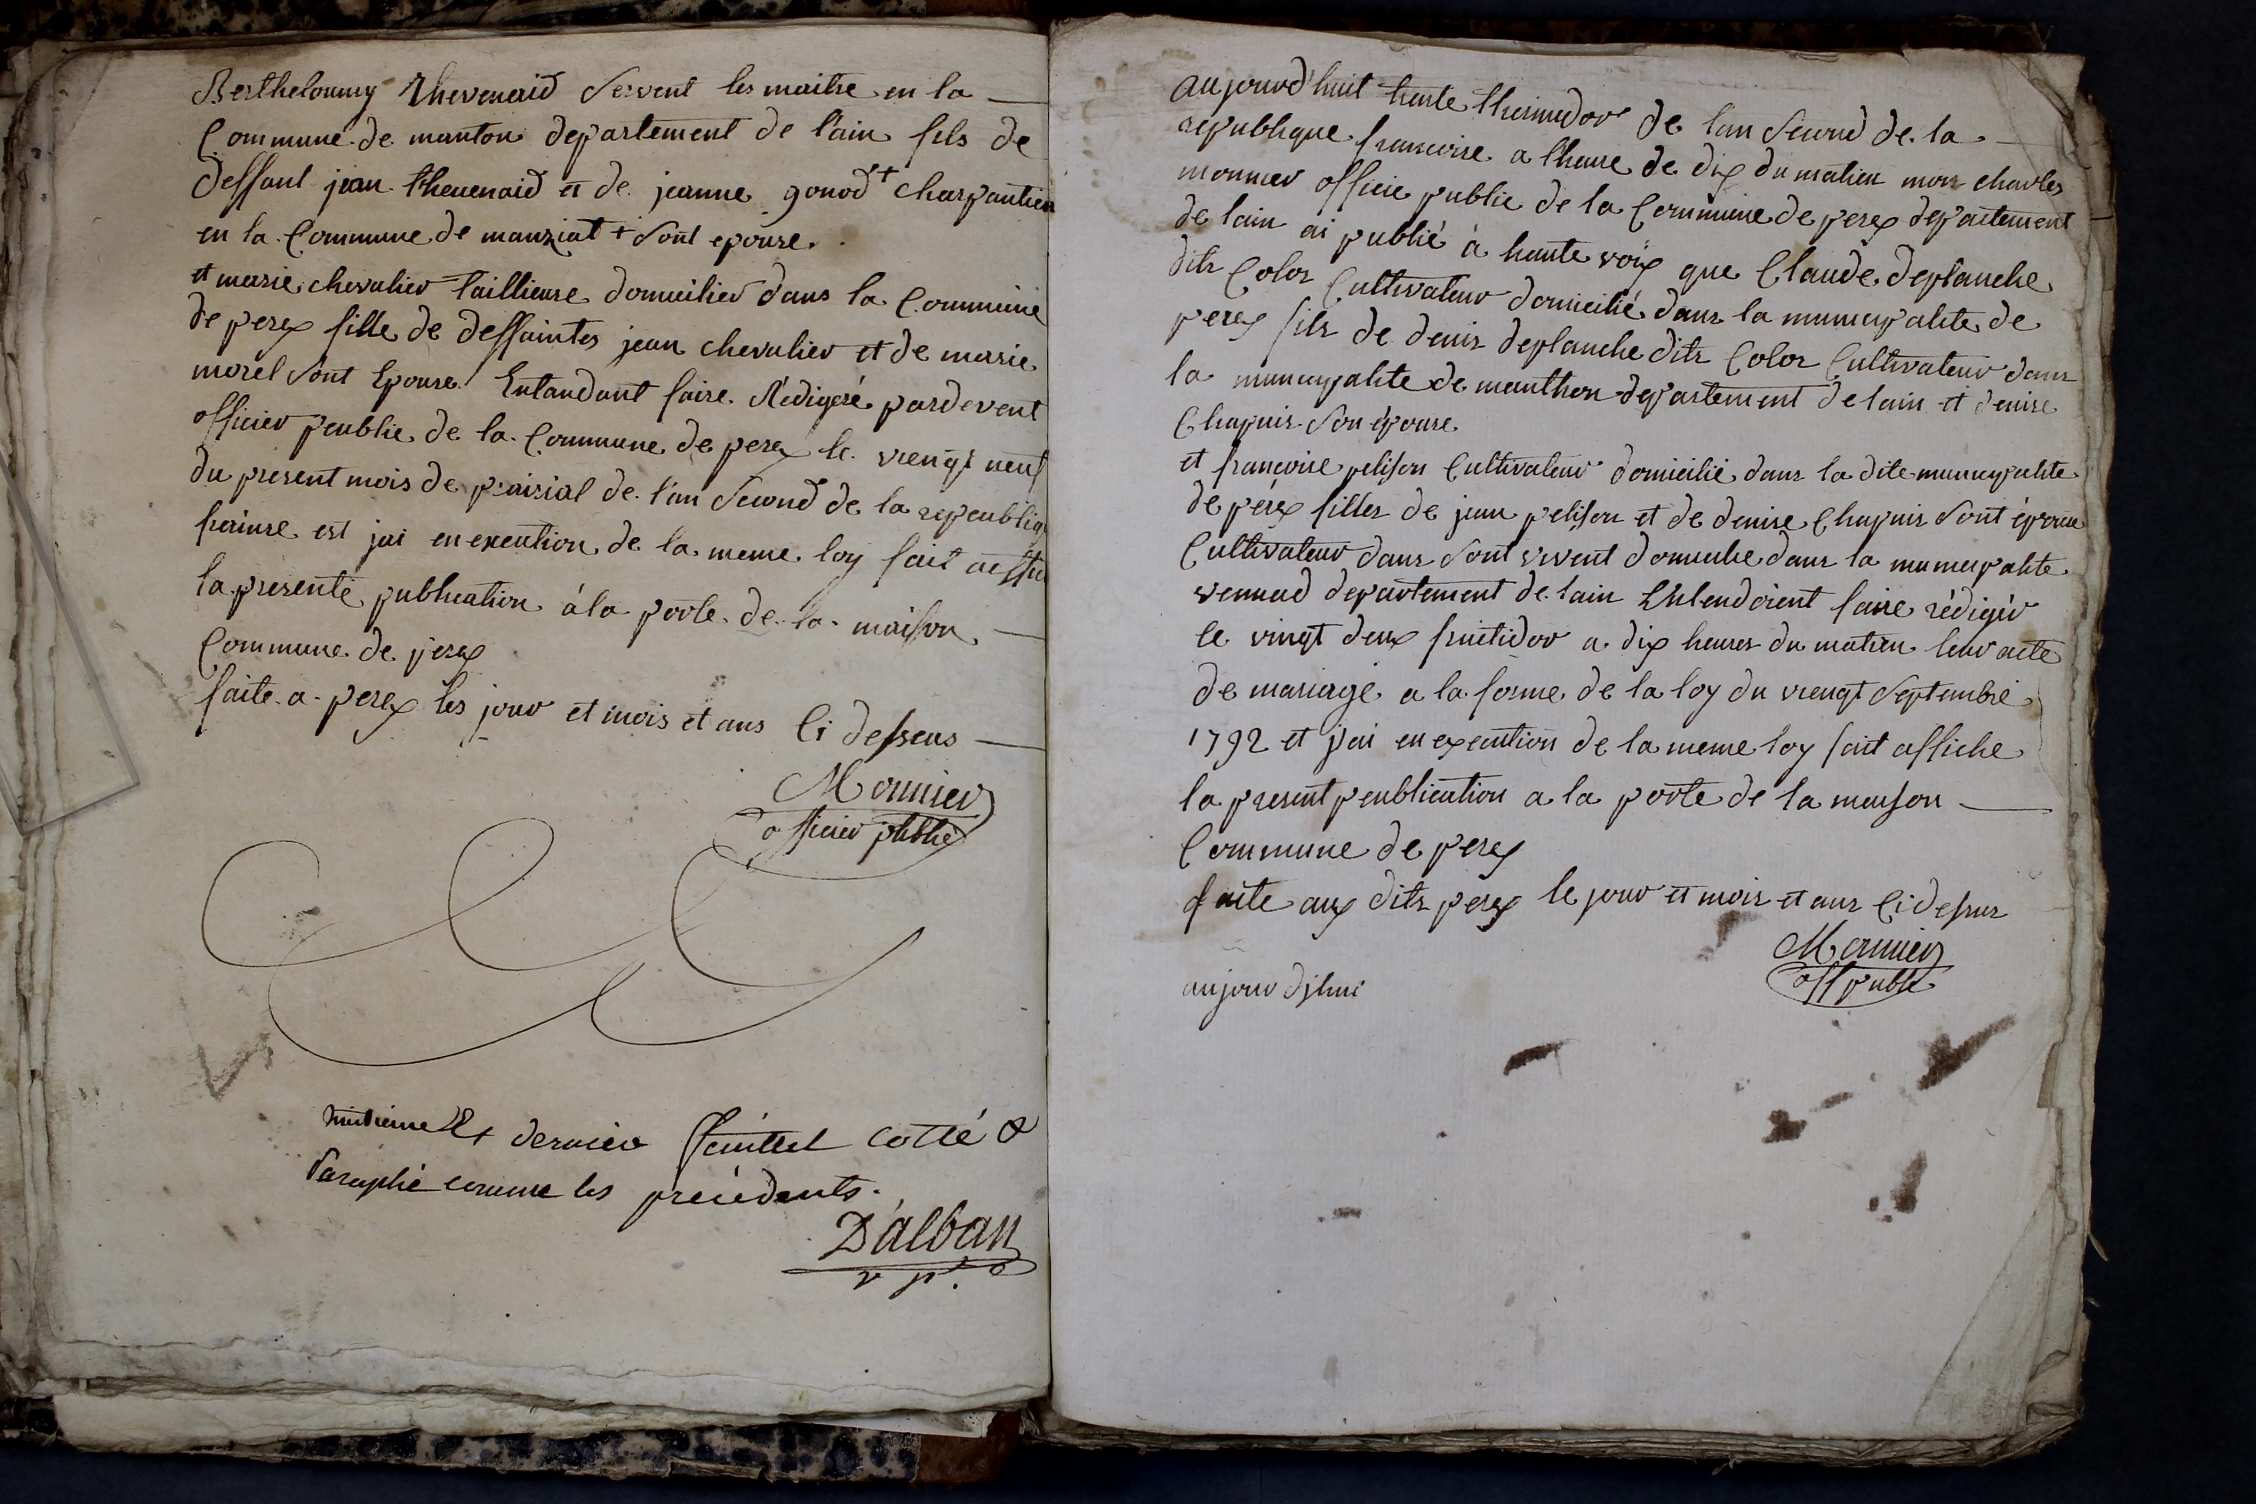 Berthelommy thevenaid servent les maitre en la
Commune de manton departement de lain fils de
deffant jean thevenaid et de jeanne gonod + charpantier
en la Commune de manziat + sont epouse.
et marie chevalier taillieuse domicilier dans la Commune
de perex fille de deffaintes jean chevalier et de marie
morel sont Epouse. Entandant faire Rédigeré pardevent
officier peublic de la Commune de perex le viengt neuf
du present mois de prairial de l'an second de la repeubliq
est jai en execution de la meme loy fait
la presente publication à la porte de la maison
Commune de perex
faite a perex les jour et mois et ans Ci dessus
Monnier
officier public
huitieme Et dernier feuillet cotté &
Paraphé comme les précédents.
D'alban
v p.
aujourd'huit trente thermidor de lan second de la
republique francoise a lheure de dix du matien moi charles
monnier officie public de la Commune de perex departement
de lain ai publié à haute voix que Claude deplanche
dits Colos Cultivateur domicilié dans la municipalite de
perex fils de denis deplanche dits Colos Cultivateur dans
la municipalite de manthon departement de lain et denise
Chapuis son épouse.
et francoise pelison Cultivateur domicilié dans la dite municipalite
de pérex filles de jean pelison et de denise Chapuis sont épouse
Cultivateur dans sont vivent domicilie dans la municipalite
departement de lain Entendoient faire rédigér
le vingt deux fruitidor a dix heures du matien leur acte
de mariage a la forme de la loy du viengt Septembre
1792 et j'ai en execution de la meme loy fait affiche
la present peublication a la porte de la maison
Commune de perex
faite aux dits perex le jour et mois et ans Ci dessus
Monnier
off public
aujour djhui